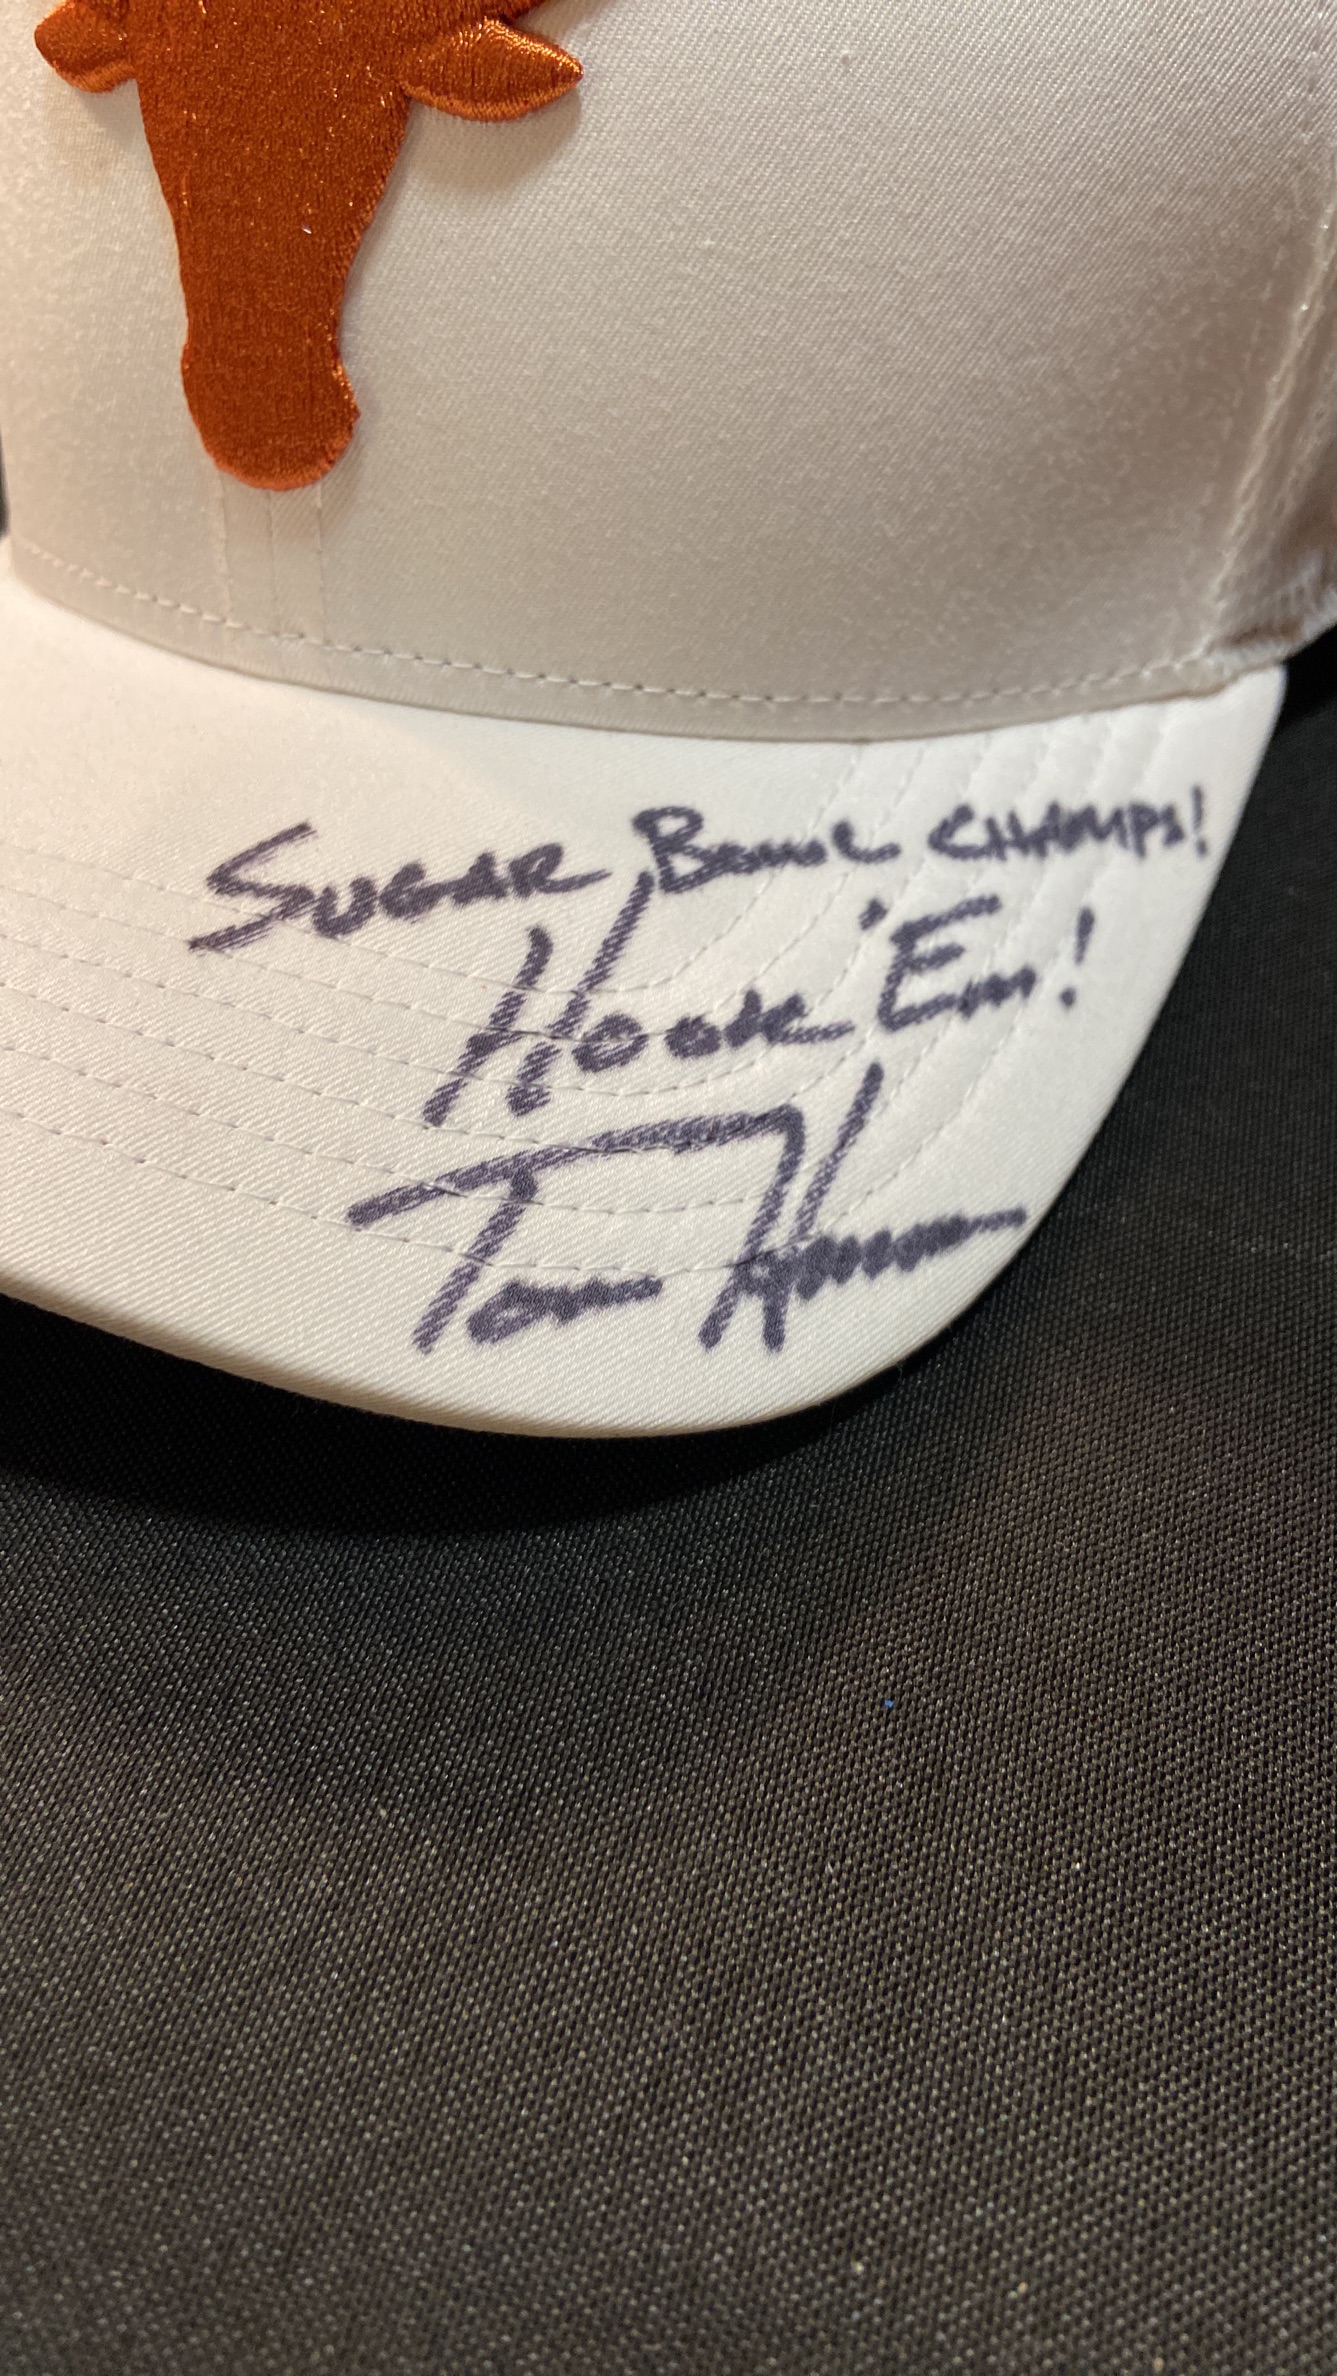 SUGAR BOWL CHAMPS!
HOOK 'EM!
Tom Herman